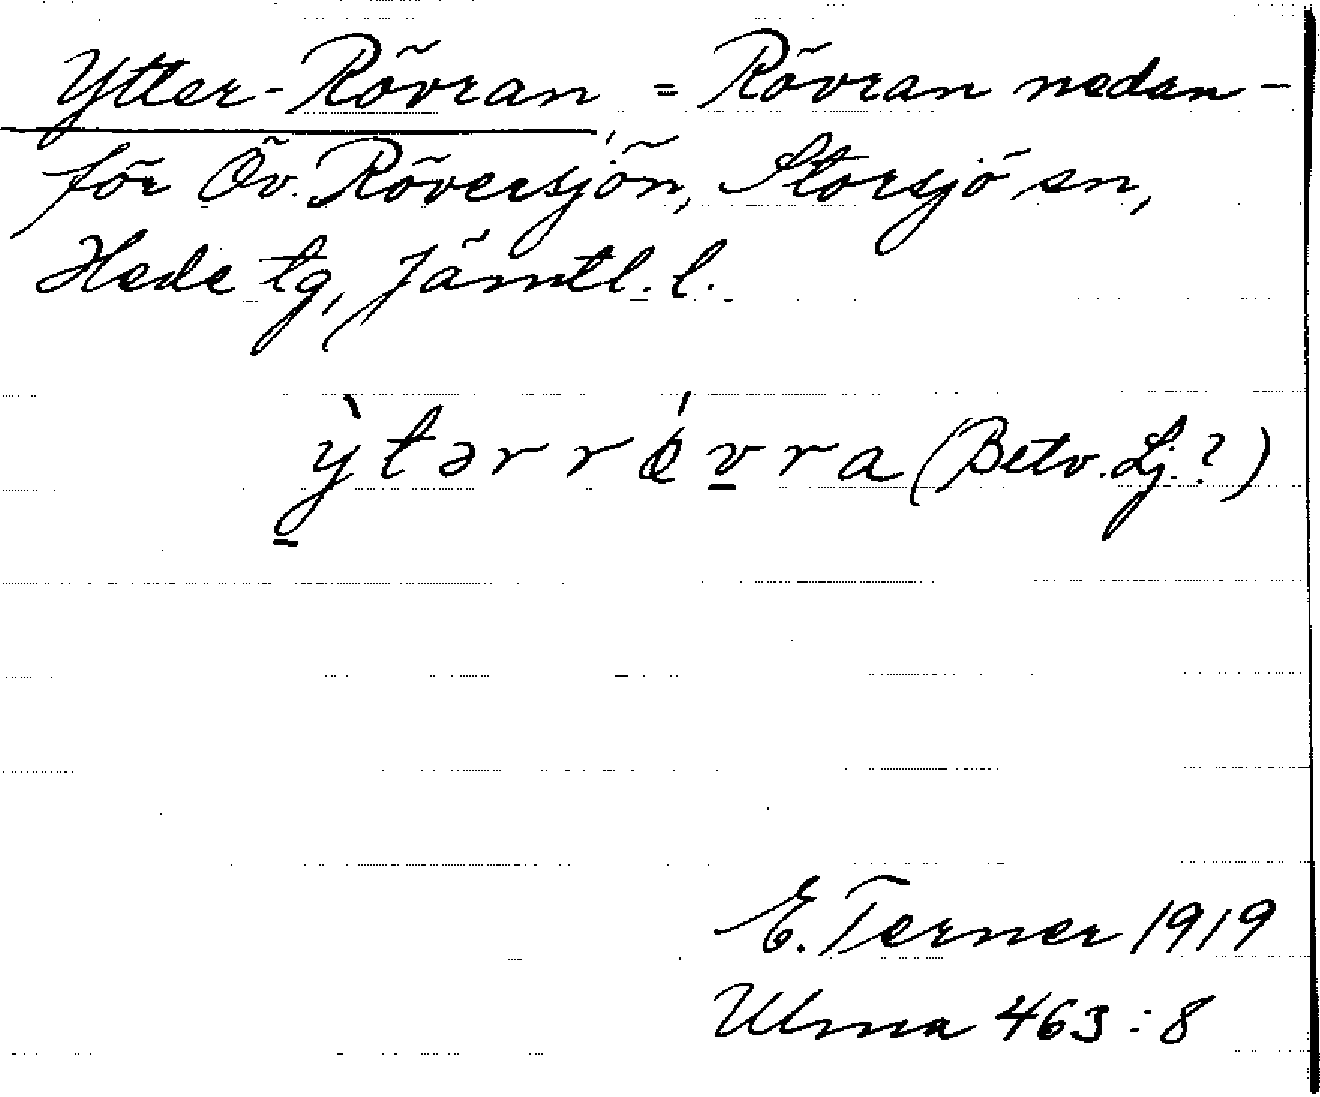 Ytter-Rövran, = Rövran nedan-
för Öv. Röversjön, Storsjö sn,
Hede tg, Jämtl. l.
ỳtərrǿvra (Betv. Lj.?)
E. Terner 1919
Ulma 463:8